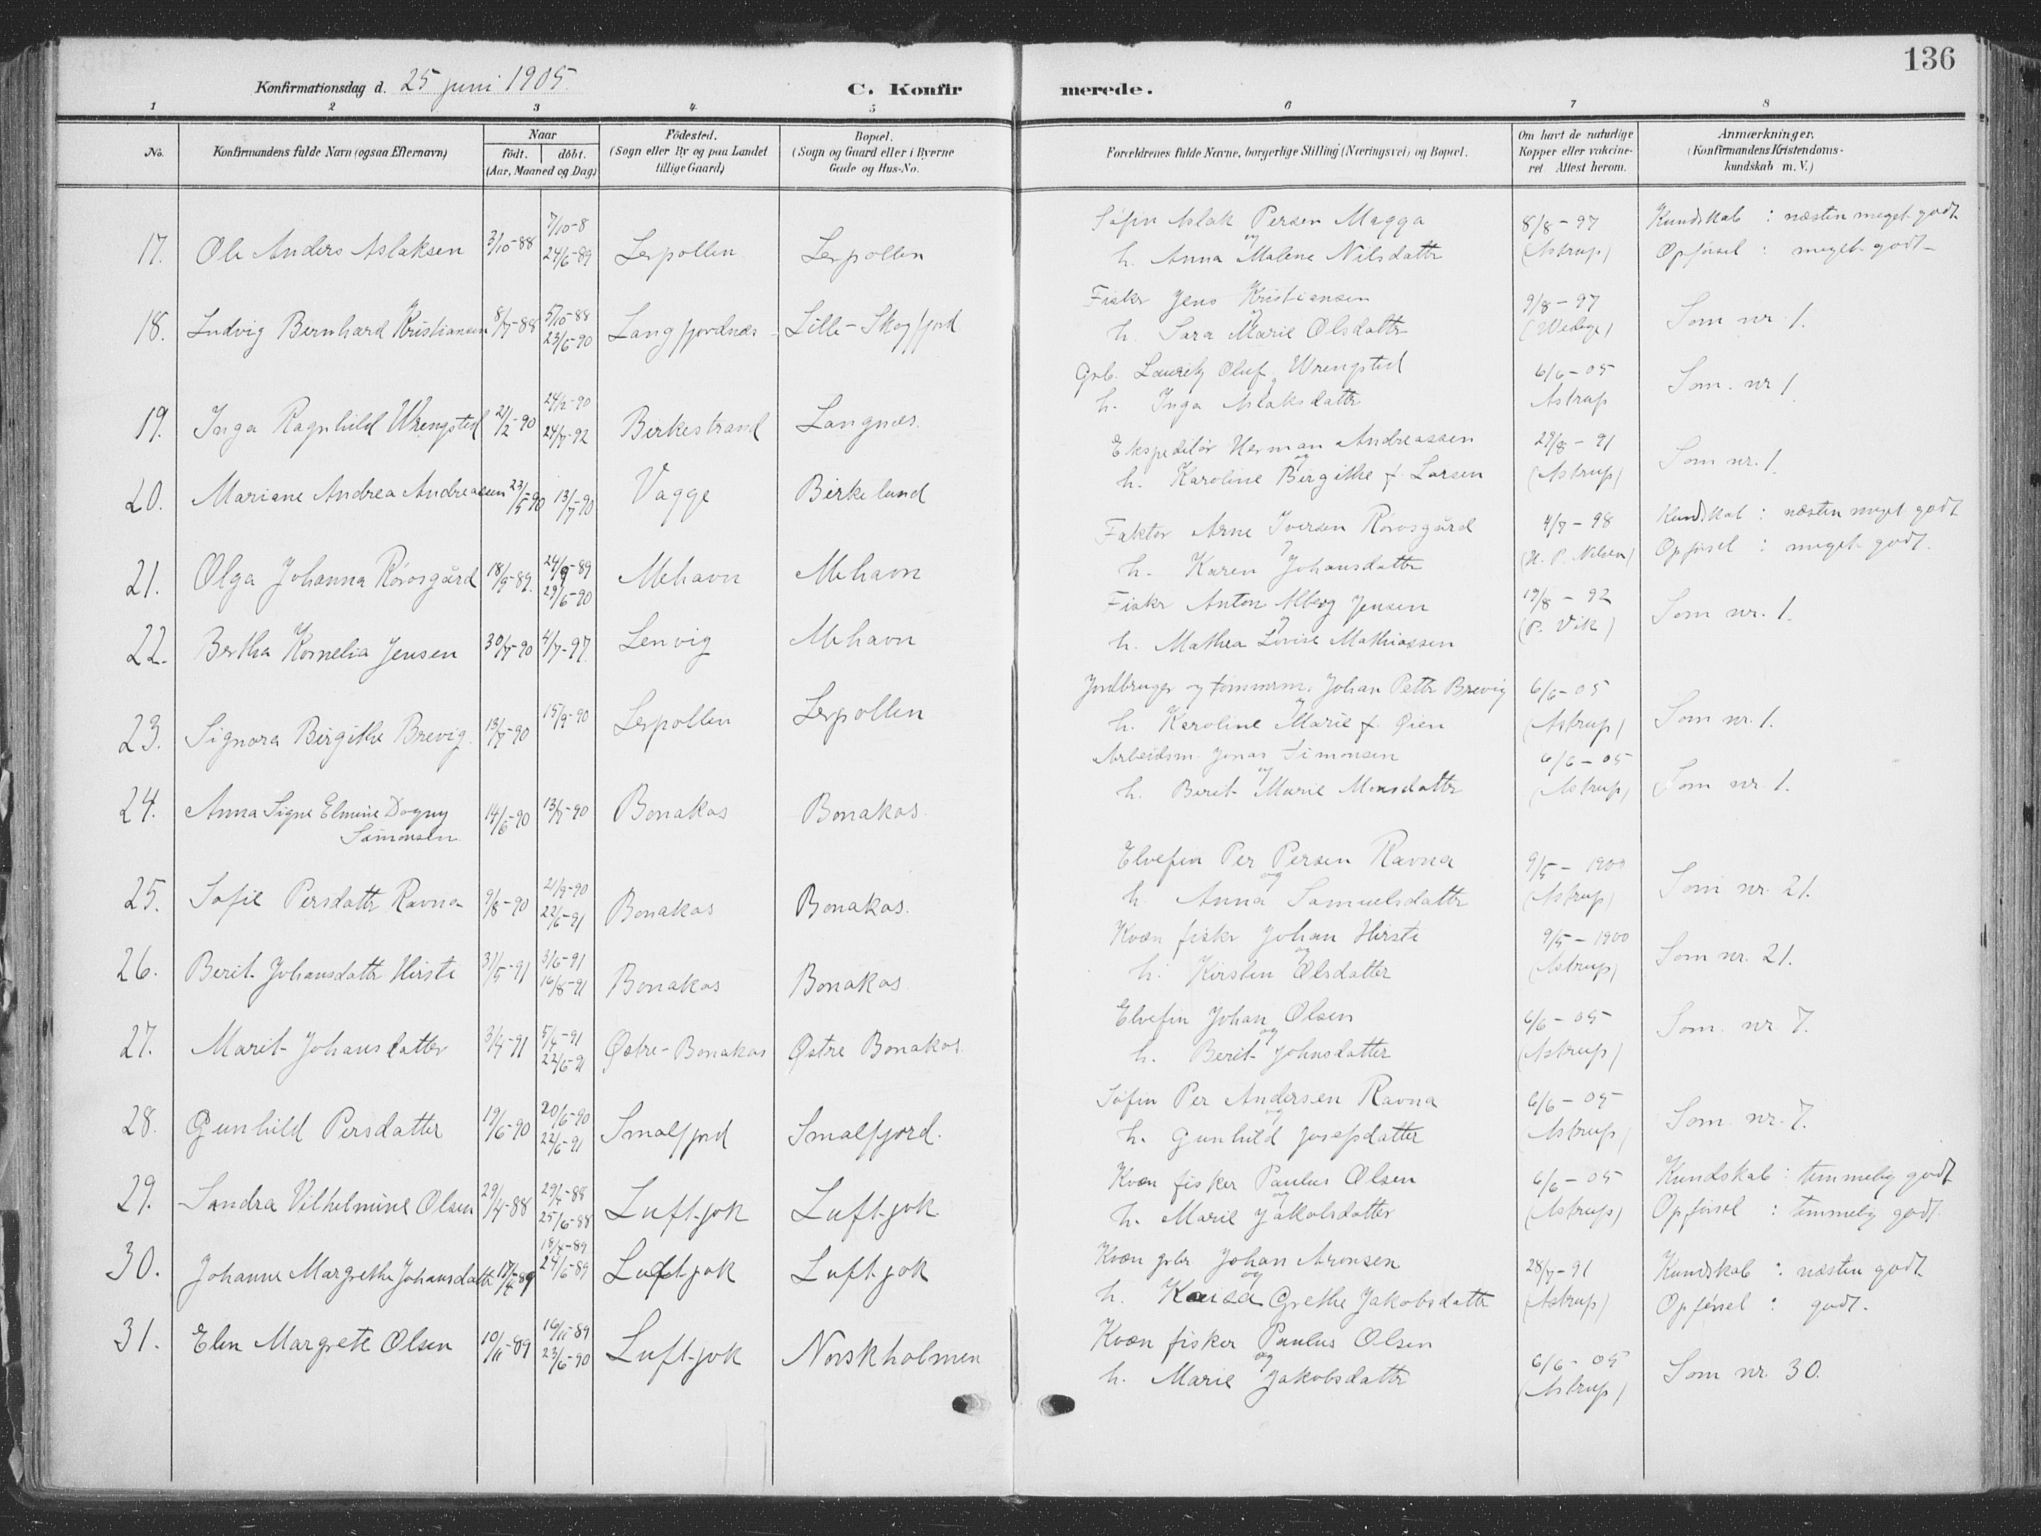 136
Konfirmationsdag d. 25 juni 1905.
C. Konfirmerede.
1 2 3 4 5 6 7 8
No. Konfirmandens fulde Navn (ogsaa Efternavn) Naar født. døbt. (Aar, Maaned og Dag) Födested. (Sogn eller By og paa Landet tillige Gaard) Bopæl. (Sogn og Gaard eller i Byerne Gade og Hus-No. Forældrenes fulde Navne, borgerlige Stilling (Næringsvei) og Bopæl. Om havt de naturlige Kopper eller vakcineret. Attest herom. Anmærkninger. (Konfirmandens Kristendomskundskab m. V.)
17. Ole Anders Aslaksen 3/10-88 7/10-8 24/6-89 Lerpollen Lerpollen Søfin Aslak Persen Magga og h. Anna Malene Nilsdatter 8/8-97 (Astrup) Kundskab : næsten meget godt Opførsel : meget godt-
18. Ludvig Bernhard Kristiansen 8/7-88 5/10-88 23/6-90 Langfjordnæs Lille-Skogfjord Fisker Jens Kristiansen og h. Sara Marie Olsdatter 9/8-97 (Wedege) Som nr. 1.
19. Inga Ragnhild Wrengsted 2/2-90 24/2-90 24/7-92 Birkestrand Langnes. Grb. Lauritz Oluf Wrengsted h. Inga Aslaksdatter 6/6-05 Astrup Som. nr 1.
20. Mariane Andrea Andreasen 23/5-90 13/7-90 Vagge Birkelund Ekspeditør Herman Andreassen og h. Karoline Birgithe f. Larsen 29/8-91 (Astrup) Som nr. 1.
21. Olga Johanna Rørosgård 18/9-89. 24/9-89 29/6-90 Mehavn Mehavn Faktor Arne Iversen Rørosgård og h. Karen Johansdatter 4/7-98 (H. P. Nilsen) Kundskab : næsten meget godt Opførsel : meget godt.
22. Bertha Kornelia Jensen 30/7-90 4/7-97. Lenvig Mehavn Fisker Anton Alberg Jensen og h. Mathea Lovise Mathiassen 19/8-92 (P. Vik) Som nr. 1.
23. Signora Birgithe Brevig. 13/7-90 15/9-90 Lerpollen Lerpollen Jordbruger og tømmerm. Johan Petter Brevig og h. Karoline Marie f. Øien 6/6-05 (Astrup) Som nr. 1.
24. Anna Signe Elmine Dagny Simonsen 14/6-90 13/7-90 Bonakas Bonakas. Arbeidsm. Jonas Simonsen og h. Berit Marie Monsdatter 6/6-05 (Astrup) Som nr. 1.
25. Sofie Persdatter Ravna 9/8-90 21/9-90 22/6-91 Bonakas Bonakas. Elvefin Per Persen Ravna og h. Anna Samuelsdatter 9/5-1900 (Astrup) Som nr. 21.
26. Berit Johansdatter Hirsti 31/5-91 3/6-91 16/8-91 Bonakas Bonakas Kvæn fisker Johan Hirsti og h. Kirsten Olsdatter 9/5-1900 (Astrup) Som nr. 21.
27. Marit Johansdatter 3/4-91 5/4-91 22/6-91 Østre-Bonakas Østre Bonakas. Elvefin Johan Olsen og h. Berit Johnsdatter 6/6-05 (Astrup) Som. nr. 7.
28. Gunhild Persdatter 19/6-90 20/6-90 22/6-91 Smalfjord Smalfjord. Søfin Per Andersen Ravna og h. Gunhild Josefsdatter 6/6-05 (Astrup) Som nr. 7.
29. Sandra Vilhelmine Olsen 29/4-88 29/4-88 25/6-88 Luftjok Luftjok Kvæn fisker Paulus Olsen og h. Marie Jakobsdatter 6/6-05 (Astrup) Kundskab : temmelig godt Opførsel : temmelig godt.
30. Johanne Margrethe Johansdatter 17/4-89 18/4-89 24/6-89 Luftjok Luftjok Kvæn grbr Johan Aronsen og h. Kaisa Grethe Jakobsdatter 28/7-91 (Astrup) Kundskab : næsten godt Opførsel : godt.
31. Elen Margrete Olsen 10/11-89 16/11-89 23/6-90 Luftjok Norskholmen Kvæn fisker Paulus Olsen og h. Marie Jakobsdatter 6/6-05 (Astrup) Som nr. 30.